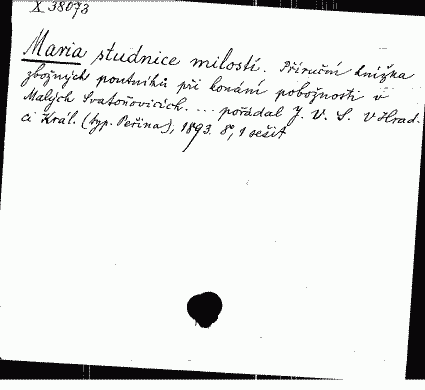 X 38073
Maria studnice milostí. Příruční knížka
zbožných poutníků při konání pobožnosti v
Malých Svatoňovicích. ... pořádal J. V. S. V Hrad-
ci Král. (typ. Peřina), 1893. 8°, 1 sešit